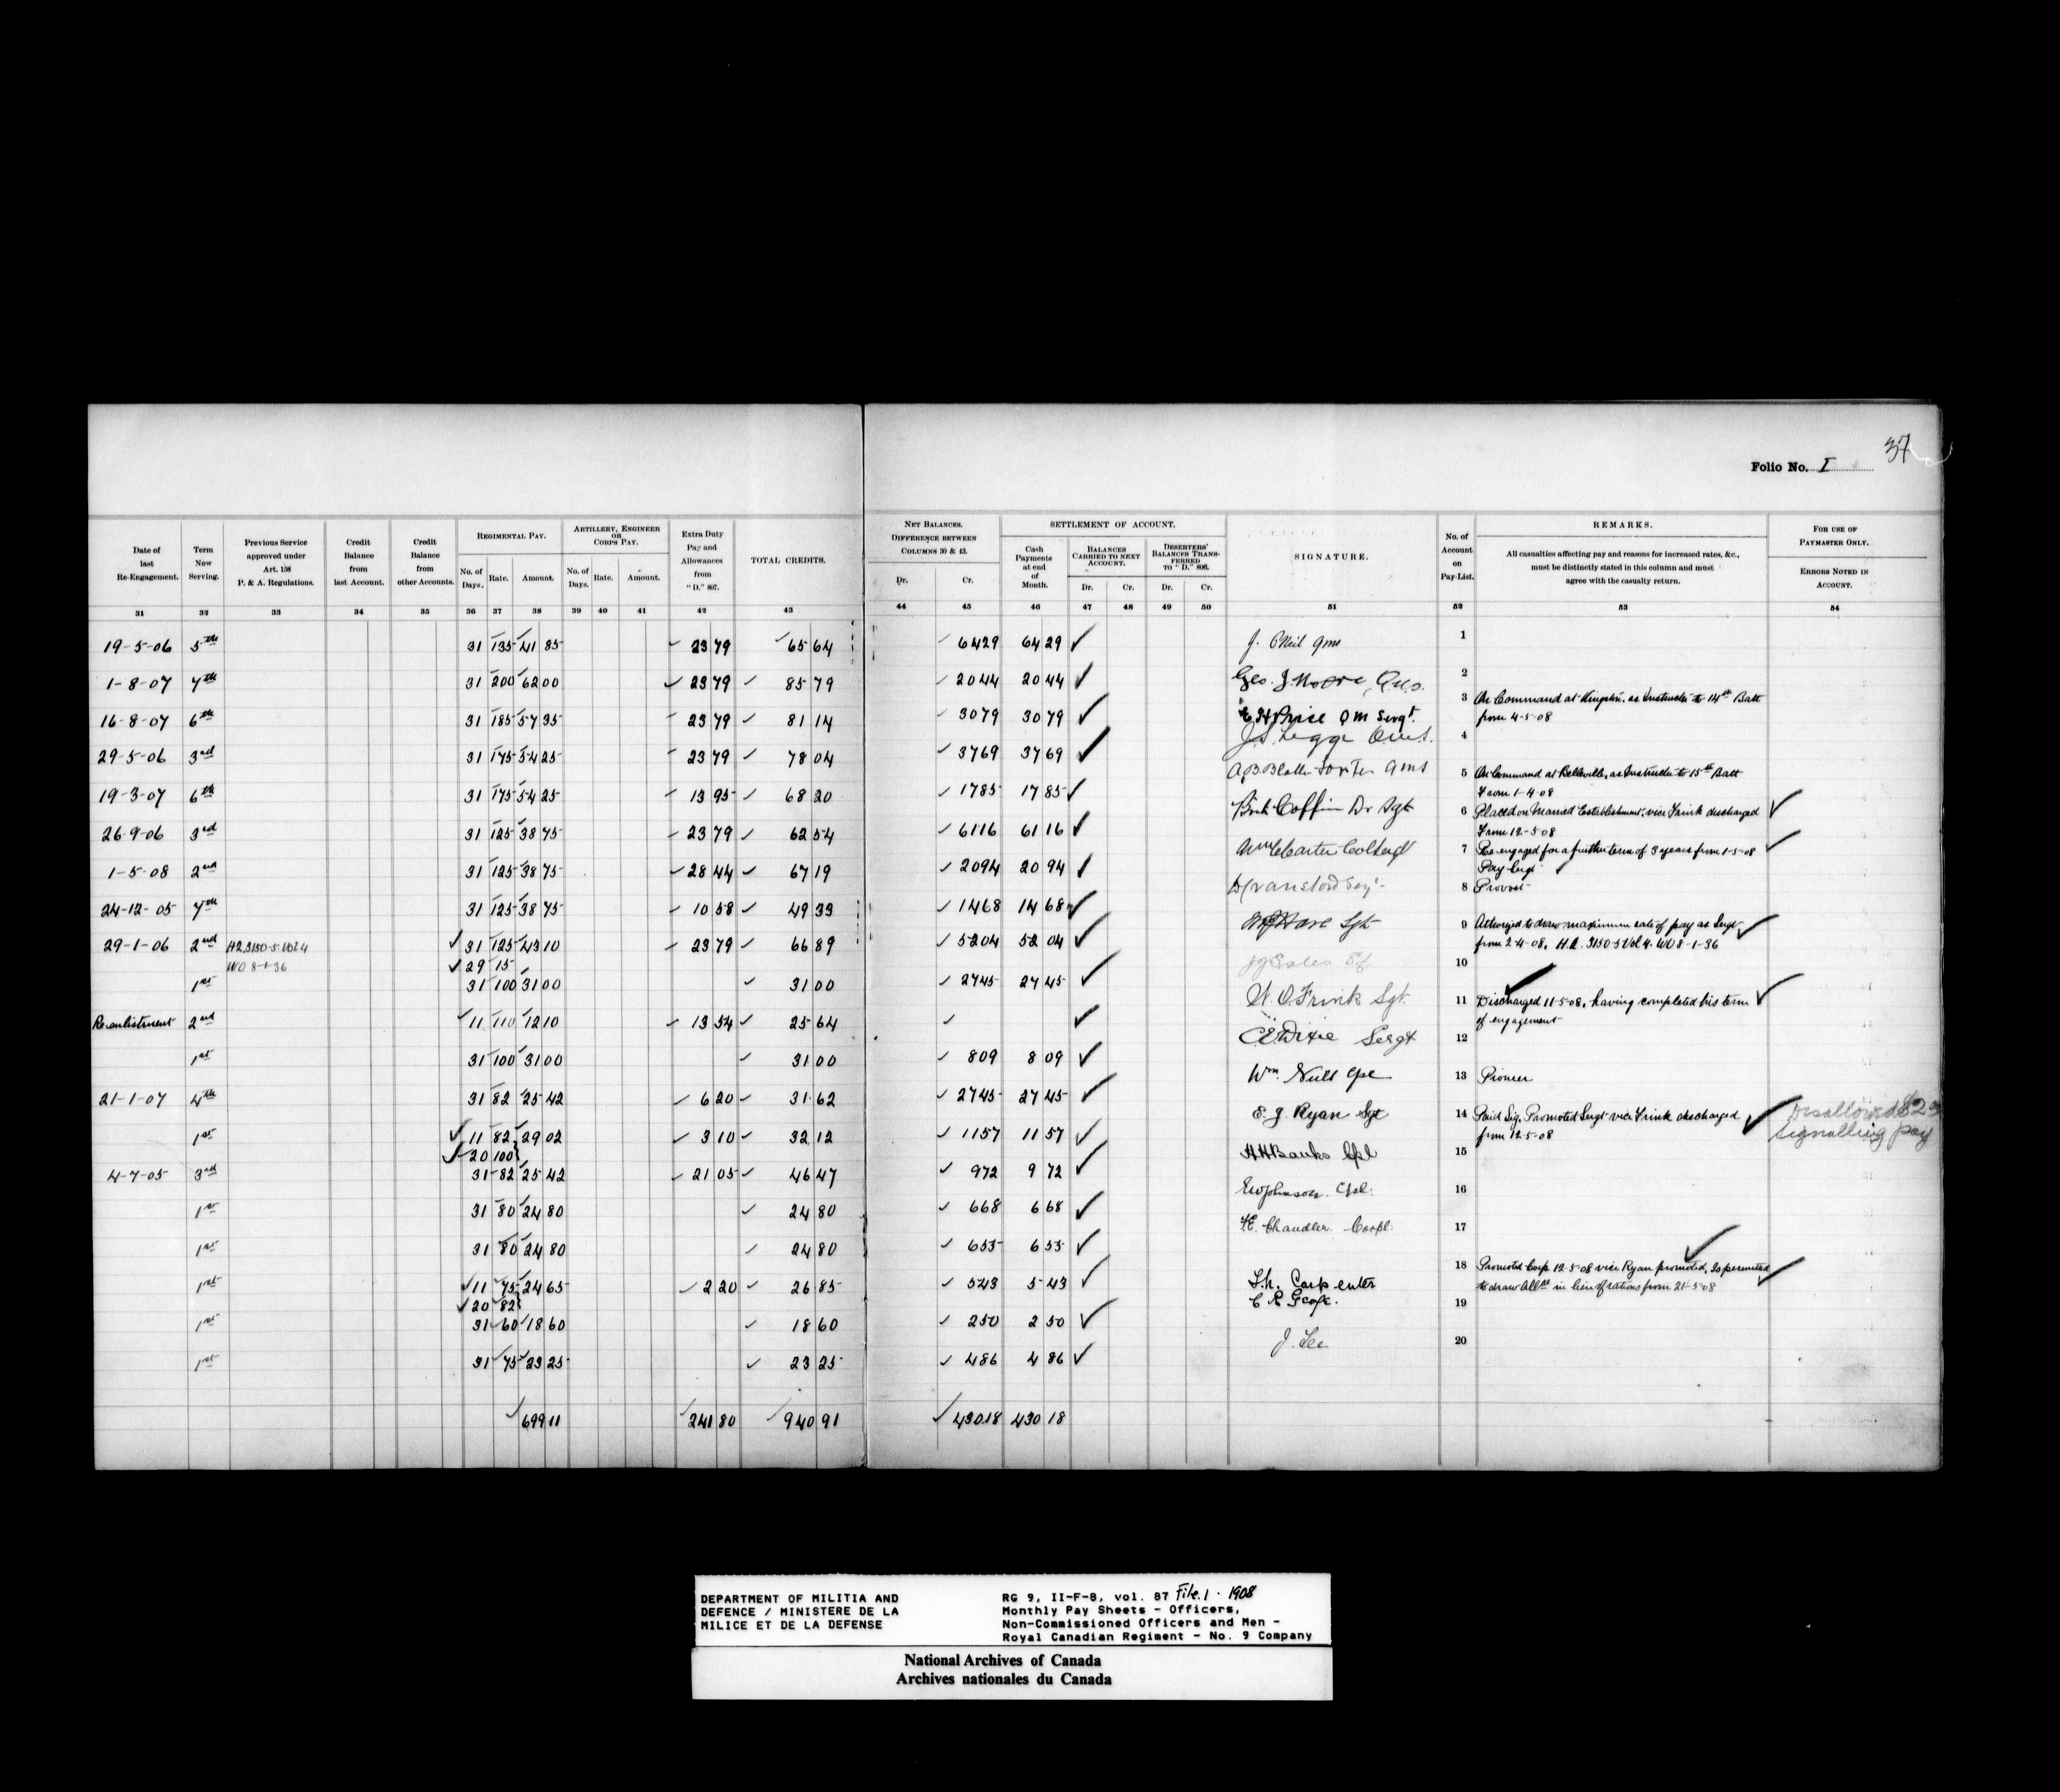 37
Folio No. I
Date of last Re-Engagement.
Term Now Serving.
Previous Service approved under Art. 158 P. & A. Regulations.
Credit Balance from last Account.
Credit Balance from other Accounts.
REGIMENTAL PAY.
No. of Days. Rate. Amount.
ARTILLERY, ENGINEER OR CORPS PAY.
No. of Days. Rate. Amount.
Extra Duty Pay and Allowances from "D." 807.
TOTAL CREDITS.
NET BALANCES.
DIFFERENCE BETWEEN COLUMNS 30 & 43.
Dr. Cr.
SETTLEMENT OF ACCOUNT.
Cash Payments at end of Month.
BALANCES CARRIED TO NEXT ACCOUNT.
Dr. Cr.
DESERTERS' BALANCES TRANSFERRED TO "D." 806.
Dr. Cr.
SIGNATURE.
No. of Account on Pay-List.
REMARKS.
All casualties affecting pay and reasons for increased rates, &c., must be distinctly stated in this column and must agree with the casualty return.
FOR USE OF PAYMASTER ONLY.
ERRORS NOTED IN ACCOUNT.
31 32 33 34 35 36 37 38 39 40 41 42 43 44 45 46 47 48 49 50 51 52 53 54
19-5-06 5th 31 135 41 85 23 79 65 64 64 29 64 29 J. O'Neil qms 1
1-8-07 7th 31 200 62 00 23 79 85 79 20 44 20 44 Geo. J. Moore, Q.M.S. 2
16-8-07 6th 31 185 57 35 23 79 81 14 30 79 30 79 Price QM Sergt. 3 On Command at Kingston. as Instructor to 14th Batt
from 4-5-08
29-5-06 3rd 31 175 54 25 23 79 78 04 37 69 37 69 J.S. Legge 4
19-3-07 6th 31 175 54 25 13 95 68 20 17 85 17 85 qms 5 On Command at Belleville, as Instructor to 15th Batt
From 1-4-08
26-9-06 3rd 31 125 38 75 23 79 62 54 61 16 61 16 Coffin Dr Sgt 6 Placed on Married Establishment, vice Frink discharged
From 12-5-08
1-5-08 2nd 31 125 38 75 28 44 67 19 20 94 20 94 Carter 7 Re-engaged for a further term of 3 years from 1-5-08
Pay Sergt
24-12-05 7th 31 125 38 75 10 58 49 33 14 68 14 68 8 Provost
29-1-06 2nd H.Q. 3150-5-Vol 4 31 125 43 10 23 79 66 89 52 04 52 04 Hare Sgt 9 Authorized to draw maximum rate of pay as Sergt
WO 8-1-36 29 15 from 2-4-08, H.Q. 3150-5 Vol 4. WO 8-1-36
1st 31 100 31 00 31 00 27 45 27 45 10
Re-enlistment 2nd 11 110 12 10 13 54 25 64 Frink Sgt. 11 Discharged 11-5-08, having completed his term
of engagement
1st 31 100 31 00 31 00 8 09 8 09 Dixie Sergt 12
21-1-07 4th 31 82 25 42 6 20 31 62 27 45 27 45 Wm. 13 Pioneer
1st 11 82 29 02 3 10 32 12 11 57 11 57 E. J. Ryan Sgt 14 Paid Sig. Promoted Sergt vice Frink discharged
20 100 from 12-5-08
Disallowed
Signalling pay
4-7-05 3rd 31 82 25 42 21 05 46 47 9 72 9 72 Banks Cpl 15
1st 31 80 24 80 24 80 6 68 6 68 Johnson Cpl. 16
1st 31 80 24 80 24 80 6 55 6 55 Chandler Corpl. 17
1st 11 75 24 65 2 20 26 85 5 43 5 43 Carpenter 18 Promoted Corp. 12-5-08 vice Ryan promoted, Is permitted
20 82 to draw Allce in lieu of rations from 21-5-08
1st 31 60 18 60 18 60 2 50 2 50 19
1st 31 75 23 25 23 25 4 86 4 86 J. Lee 20
699 11 241 80 940 91 430 18 430 18
DEPARTMENT OF MILITIA AND
DEFENCE / MINISTERE DE LA
MILICE ET DE LA DEFENSE
RG 9, II-F-8, vol. 87 File 1 · 1908
Monthly Pay Sheets - Officers,
Non-Commissioned Officers and Men -
Royal Canadian Regiment - No. 9 Company
National Archives of Canada
Archives nationales du Canada